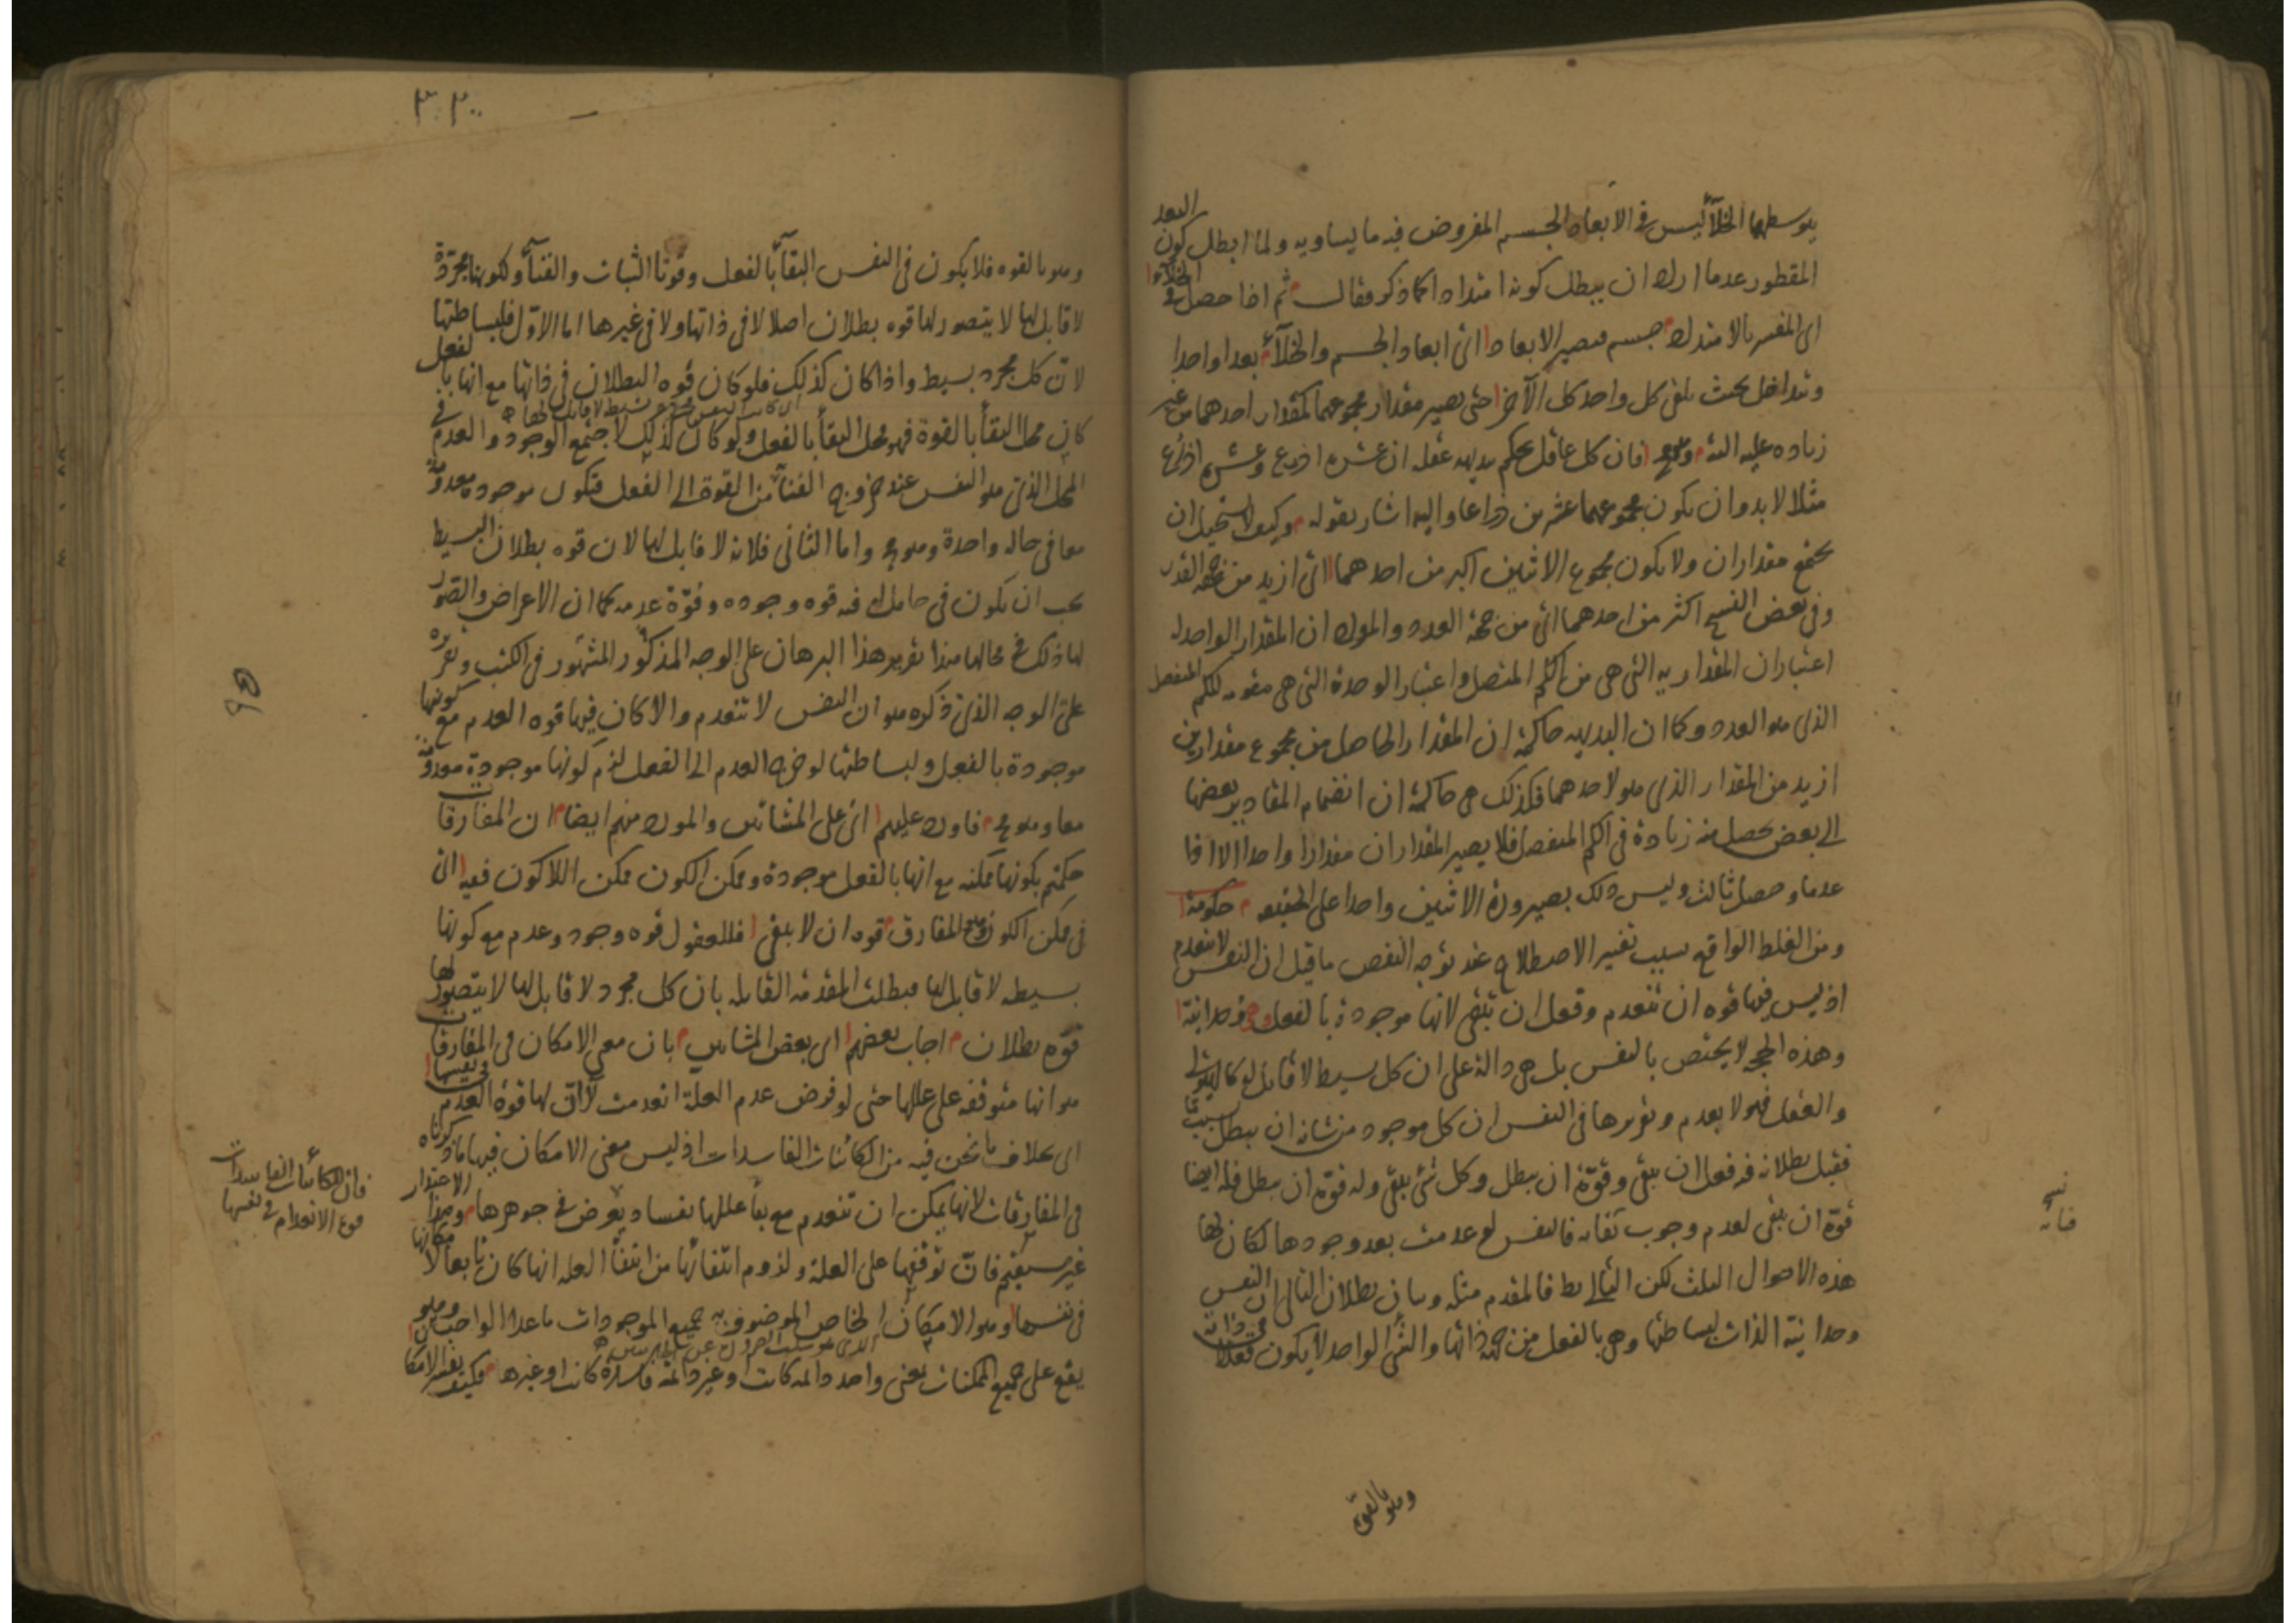 يتوسطها الخلأ ليس في الابعاد الجسم المفروض فيه ما يساويه ولما ابطل كون البعد
المقطور عدما اراد ان يبطل كونه امتدادا كما ذكر فقال ثم اذا حصل في الخلاء
اى المفسر بالامتداد جسم فيصير الابعاد اى ابعاد الجسم والخلأ بعدا واحدا
وتداخل بحيث يلقى كل واحد كل الآخر حتى يصير مقدار مجموعهما كمقدار احدهما من غير
زياده عليه البتة ومح فان كل عاقل يحكم بديهه عقله ان عشره اذرع وعشره اذرع
مثلا لا بد وان يكون مجموعهما عشرين ذراعا واليه اشار بقوله وكيف لا يستحيل ان
يجتمع مقداران ولا يكون مجموع الاثنين اكبر من احدهما اى ازيد من جهه القدر
وفي بعض النسخ اكثر من احدهما اى من جهة العدد والمراد ان المقدار الواحد له
اعتباران المقداريه التى هى من الكم المتصل واعتبار الوحدة التى هى مقومه للكم المنفصل
الذى هو العدد وكما ان البديهه حاكمة ان المقدار الحاصل من مجموع مقدارين
ازيد من المقدار الذى هو لاحدهما فكذلك هى حاكمة ان انضمام المقادير بعضها
الى بعض يحصل منه زيادة في الكم المنفصل فلا يصير المقداران مقدارا واحدا الا اذا
عدما وحصل ثالث وليس ذلك بصيرورة الاثنين واحدا على الحقيقه حكومة
ومن الغلط الواقع بسبب تغيير الاصطلاح عند توجه النقض ما قيل ان النفس لا تنعدم
اذ ليس فيها قوه ان تنعدم وفعل ان تبقى لانها موجودة بالفعل وهى وحدانية
وهذه الحجه لا يختص بالنفس بل هى دالة على ان كل بسيط لا قابل له كالهيولى
والعقل فهو لا يعدم وتقريرها في النفس ان كل موجود من شانه ان يبطل بسبب
فقبل بطلانه فيه فعل ان يبقى وقوة ان يبطل وكل شئ يبقى وله قوة ان يبطل فله ايضا
قوة ان يبقى لعدم وجوب بقائه فالنفس لو عدمت بعد وجودها لكان لها
هذه الاحوال الثلث لكن التالى بط فالمقدم مثله وبيان بطلان التالى ان النفس
وحدانية الذات لبساطتها وهى بالفعل من جهة ذاتها والشئ الواحد لا يكون فعلا
في ذاته
وهو بالقوة
فنائه
٣٠٣٠
وهو بالقوه فلا يكون في النفس البقأ بالفعل وقوتا الثبات والفنأ ولكونها مجردة
لا قابل لها لا يتصور لها قوه بطلان اصلا لا في ذاتها ولا في غيرها اما الاول فلبساطتها
لان كل مجرد بسيط واذا كان كذلك فلو كان قوه البطلان في ذاتها مع انها بالفعل
كان محل البقأ بالقوة فهو محل البقأ بالفعل ولو كان كذلك لاجتمع الوجود والعدم في
المحل الذى هو النفس عند خروج الفنأ من القوة الى الفعل فتكون موجودة معدومة
معا في حاله واحدة وهو مح واما الثانى فلانه لا قابل لها لان قوه بطلان البسيط
يجب ان يكون في حامل له فيه قوه وجوده وقوة عدمه كما ان الاعراض والصور
لها ذلك في محالها هذا تقرير هذا البرهان على الوجه المذكور المشهور في الكتب وتقريره
على الوجه الذى ذكره هو ان النفس لا تنعدم والا كان فيها قوه العدم مع كونها
موجودة بالفعل ولبساطتها لو خرج العدم الى الفعل لزم كونها موجودة معدومة
معا وهو مح فاورد عليهم اى على المشائين والمورد منهم ايضا ان المفارقات
حكمتم بكونها ممكنه مع انها بالفعل موجودة وممكن الكون ممكن اللاكون ففيه اى
في ممكن الكون وهو المفارق قوه ان لا يبقى فللعقول قوه وجود وعدم مع كونها
بسيطه لا قابل لها فبطلت المقدمه القايله بان كل مجرد لا قابل لها لا يتصور لها
قوه بطلان اجاب بعضهم اى بعض المشائين بان معنى الامكان في المفارقات
هو انها متوقفه على عللها حتى لو فرض عدم العلة انعدمت لا ان لها قوة العدم في نفسها
اى بخلاف ما نحن فيه من الكائنات الفاسدات اذ ليس معنى الامكان فيها ما ذكرناه
في المفارقات لانها يمكن ان تنعدم مع بقأ عللها بفساد يعرض في جوهرها وهذا الاعتذار
غير مستقيم فان توقفها على العلة ولزوم انتفائها من انتفأ العله انما كان تابعا لامكانها
في نفسها وهو الامكان الخاص الموصوف به جميع الموجودات ما عدا الواجب وهو
يقع على جميع الممكنات بمعنى واحد دائمه كانت او غير دائمة فاسدة كانت او غيرها فكيف يفسر الامكان
فان الكائنات الفاسدات
قوه الانعدام في نفسها